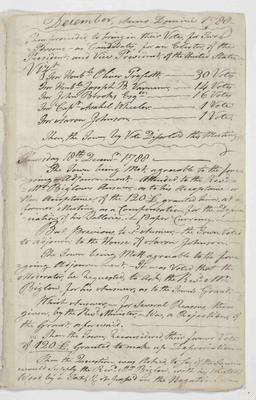 December, Anno Domini 1788
Then proceeded to bring in their Votes for Two
Persons as Candidates, for an Elector of the
President, and Vice President of the United States
Viz.
Honble Oliver Prescott 30 Votes
Honble Joseph B. Varnum 14 Votes
Votes
Capt. Asahel Wheeler 1 Vote
Aaron Johnson 1 Vote
Then the Town, by Vote Dissolved this Meeting
Thursday 18th Decemr. 1788
The Town being Met, agreeable to the fore
going Adjournment. Attended to the Revd.
Mr. Biglows Answer, as to his Acceptance or
Non Acceptance, of the 120£, granted him, at a
former Meeting, as a Compensation for the Depre
ciation of his Sallery, in Paper Currency.
But Previous to Answer, the Town Voted
to adjourn to the House of Aaron Johnson
The Town being Mett, agreeable to the fore
going Adjournment. It was Voted that the
Moderator, be requested, to ask the Revd. Mr.
Biglow for his Answer, as to the Towns Grant
Which Answer, for Several Reasons then
given, by the Revd. Minister, Was, a Rejection of
the Grant, aforesaid.
Then the Town, Reconsidered their former Vote
of 120£, Granted to make up Depreciation
Then the Question was Asked, to See if the Town
would Supply the Revd. Mr. Biglow, with his
Wood by a Tax, & it passed in the Negative